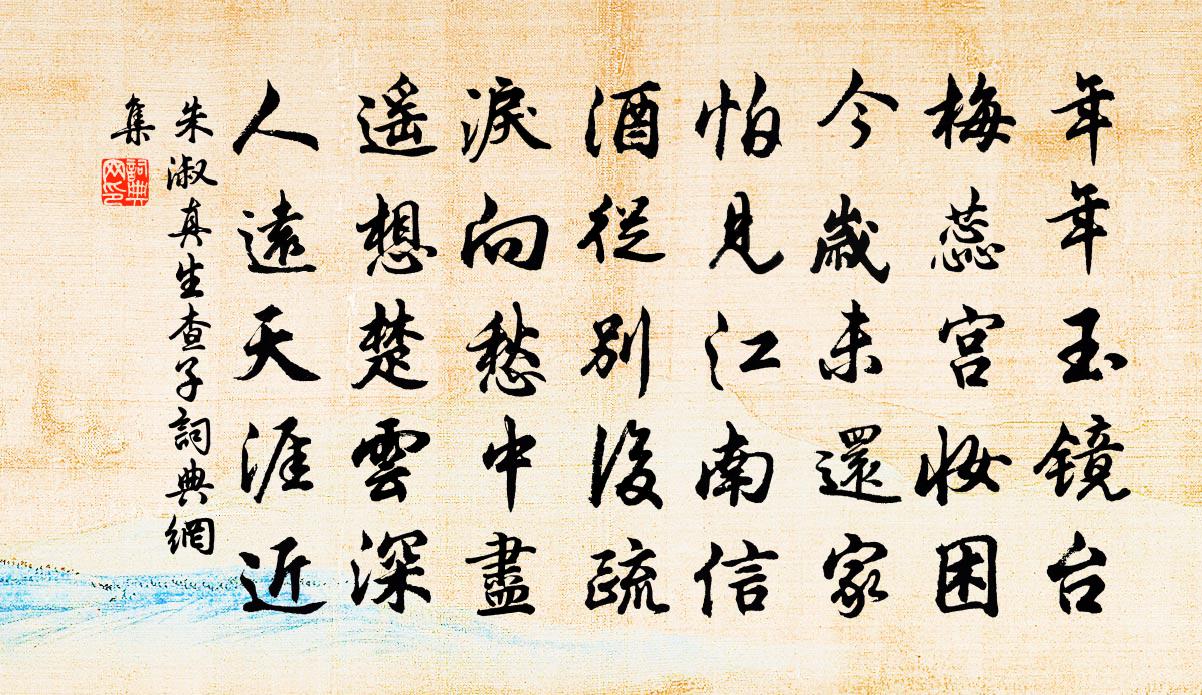 年年玉镜台
梅蕊宫妝困
今歲未還家
怕見江南信
酒從別後疏
淚向愁中盡
遥想楚雲深
人遠天涯近
朱淑真生查子詞典網
集
詞典
网印